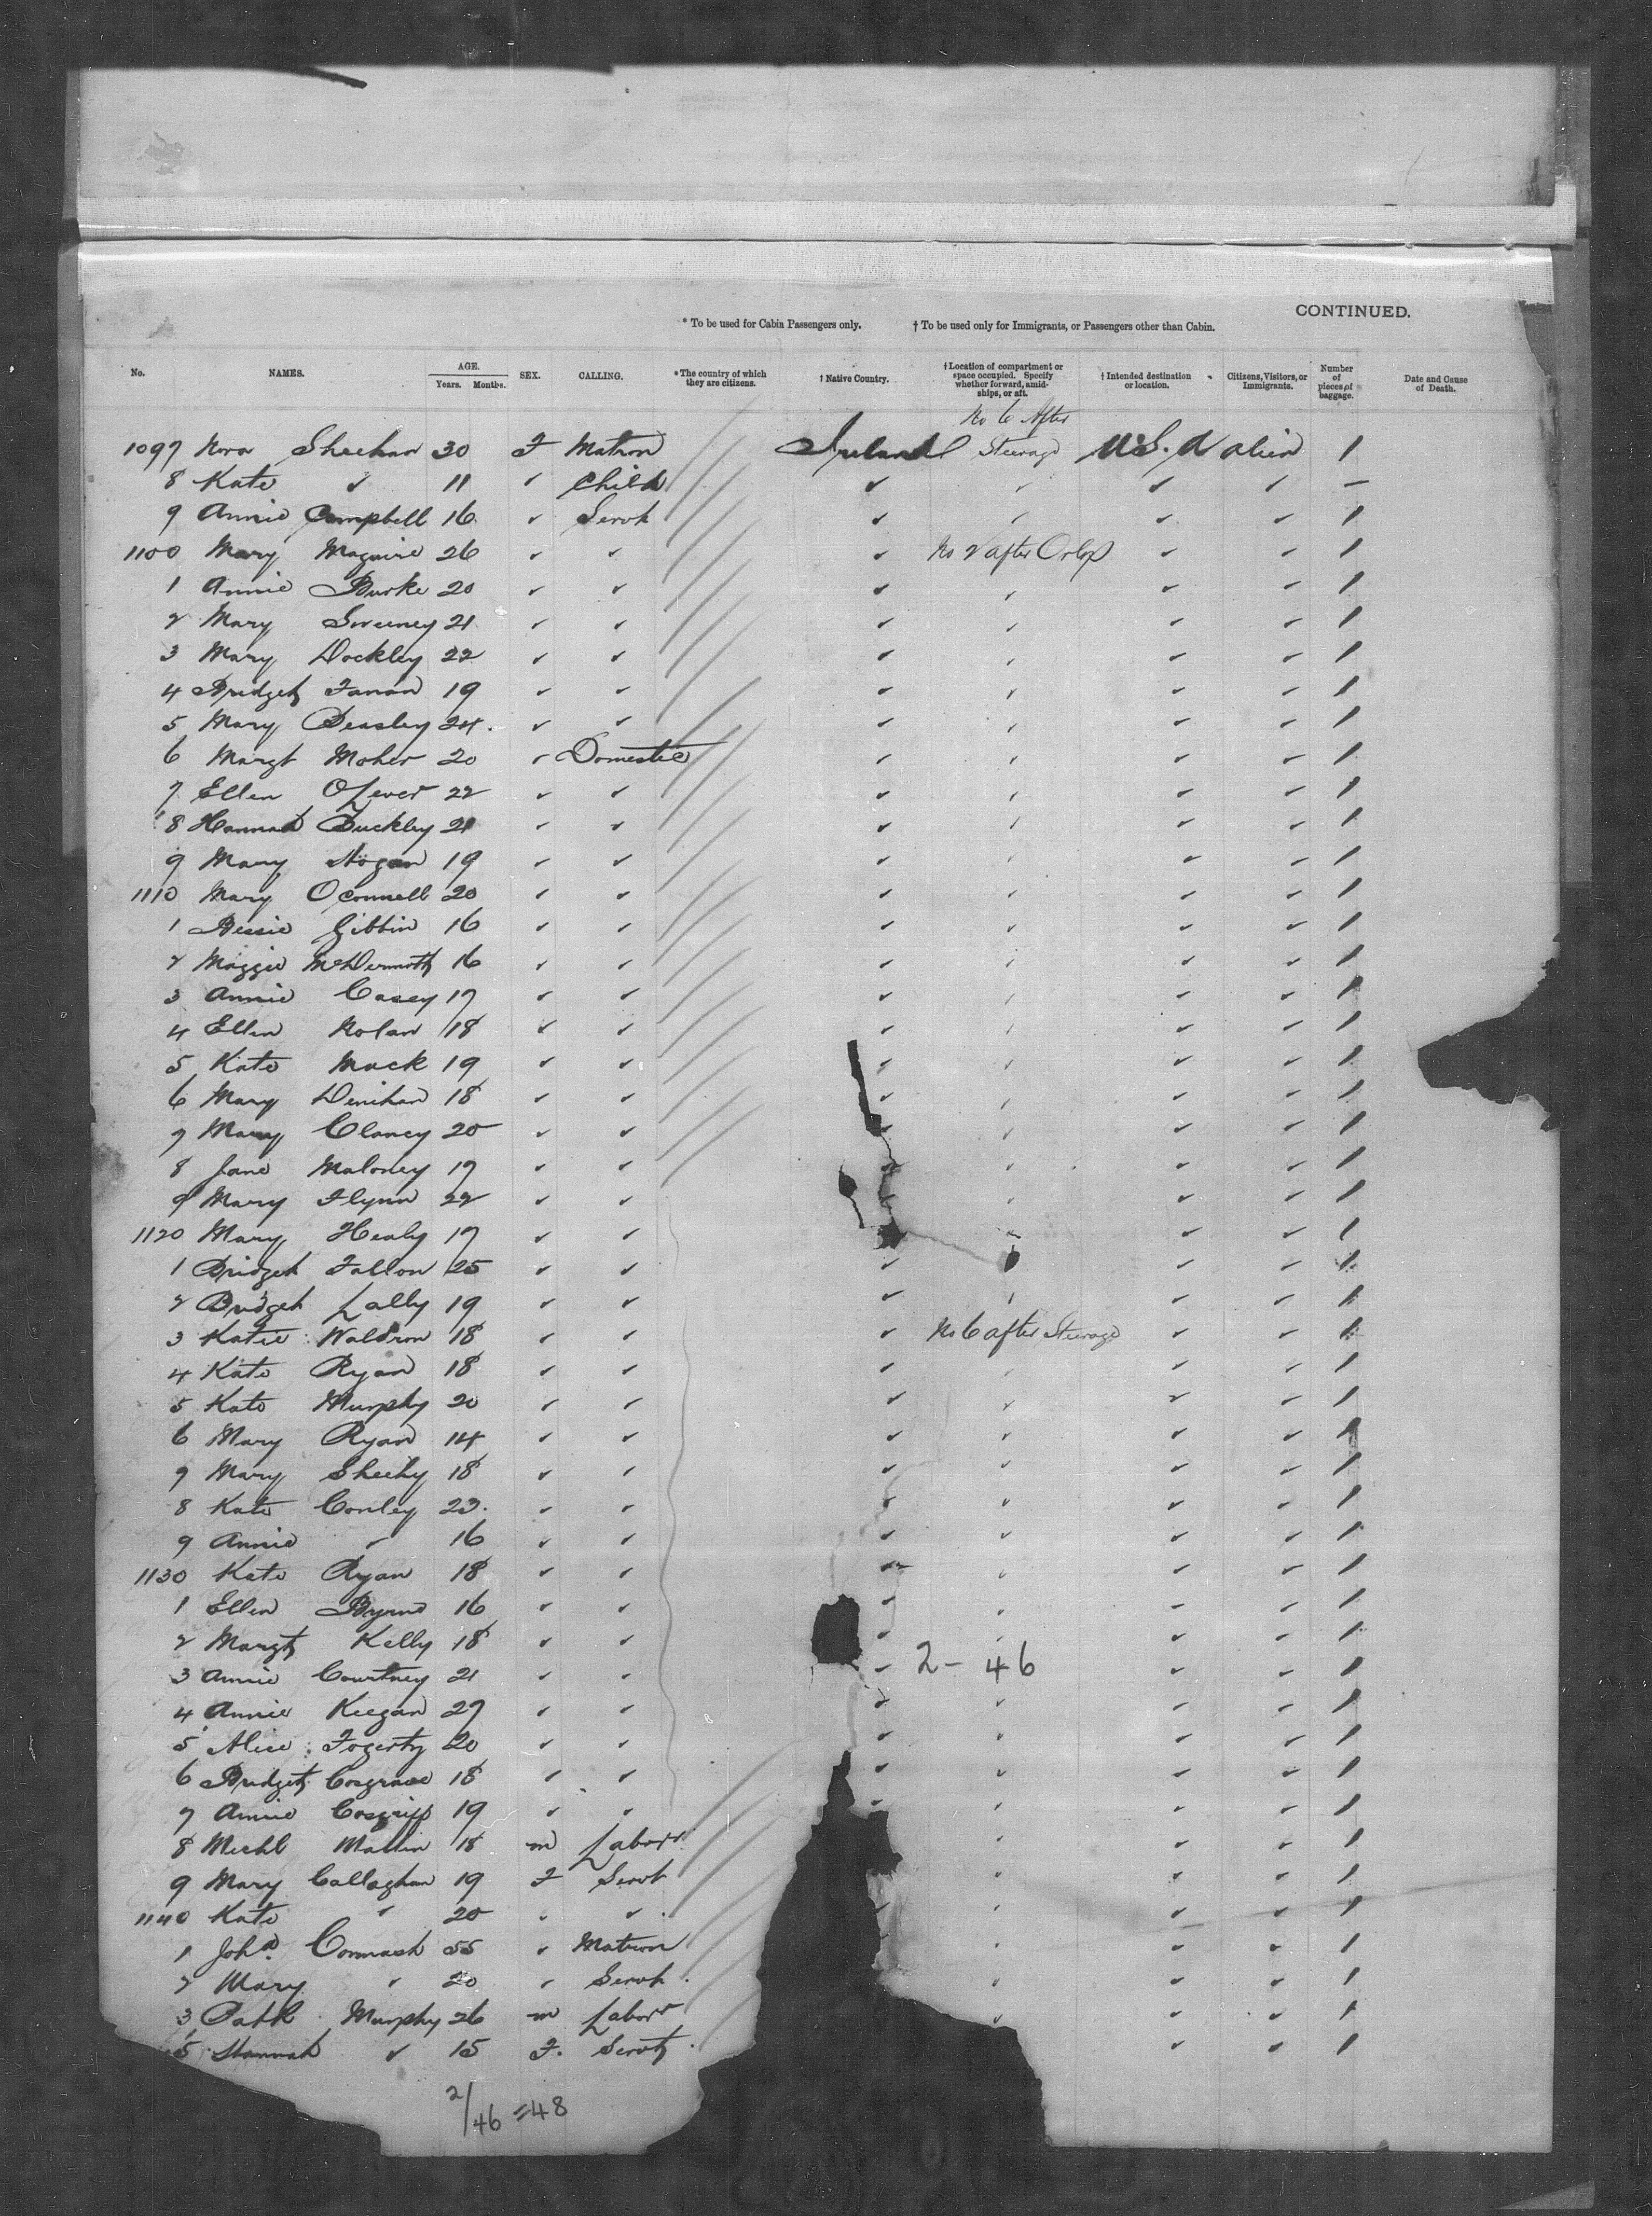 CONTINUED.
* To be used for Cabin Passengers only. † To be used only for Immigrants, or Passengers other than Cabin.
No. NAMES. AGE. Years. Months. SEX. CALLING. * The country of which they are citizens. † Native Country. † Location of compartment or space occupied. Specify whether forward, amidships, or aft. † Intended destination or location. Citizens, Visitors, or Immigrants. Number of pieces of baggage. Date and Cause of Death.
No 6 After
1097 Nora Sheehan 30 F Matron Ireland Steerage U.S.A alien 1
8 Kate ✓ 11 ✓ Child ✓ ✓ ✓ ✓ —
9 Annie Campbell 16 ✓ Servt ✓ ✓ ✓ ✓ 1
1100 Mary Maguire 26 ✓ ✓ ✓ No 2 after Orlop ✓ ✓ 1
1 Annie Burke 20 ✓ ✓ ✓ ✓ ✓ ✓ 1
2 Mary Sweeney 21 ✓ ✓ ✓ ✓ ✓ ✓ 1
3 Mary Dockley 22 ✓ ✓ ✓ ✓ ✓ ✓ 1
4 Bridget 19 ✓ ✓ ✓ ✓ ✓ ✓ 1
5 Mary Beasley 24 ✓ ✓ ✓ ✓ ✓ ✓ 1
6 Margt Moher 20 ✓ Domestic ✓ ✓ ✓ ✓ 1
7 Ellen 22 ✓ ✓ ✓ ✓ ✓ ✓ 1
8 Hannah Buckley 21 ✓ ✓ ✓ ✓ ✓ ✓ 1
9 Mary Hogan 19 ✓ ✓ ✓ ✓ ✓ ✓ 1
1110 Mary OConnell 20 ✓ ✓ ✓ ✓ ✓ ✓ 1
1 Bessie Gibbin 16 ✓ ✓ ✓ ✓ ✓ ✓ 1
2 Maggie McDermott 16 ✓ ✓ ✓ ✓ ✓ ✓ 1
3 Annie Casey 17 ✓ ✓ ✓ ✓ ✓ ✓ 1
4 Ellen Nolan 18 ✓ ✓ ✓ ✓ ✓ ✓ 1
5 Kate Mack 19 ✓ ✓ ✓ ✓ ✓ ✓ 1
6 Mary Denihan 18 ✓ ✓ ✓ ✓ ✓ ✓ 1
7 Mary Clancy 20 ✓ ✓ ✓ ✓ ✓ ✓ 1
8 Jane Maloney 17 ✓ ✓ ✓ ✓ ✓ ✓ 1
9 Mary Flynn 22 ✓ ✓ ✓ ✓ ✓ ✓ 1
1120 Mary Healy 17 ✓ ✓ ✓ ✓ ✓ 1
1 Bridget Fallon 25 ✓ ✓ ✓ ✓ ✓ 1
2 Bridget Lally 19 ✓ ✓ ✓ ✓ ✓ ✓ 1
3 Katie Waldron 18 ✓ ✓ ✓ No 6 after Steerage ✓ ✓ 1
4 Kate Ryan 18 ✓ ✓ ✓ ✓ ✓ ✓ 1
5 Kate Murphy 20 ✓ ✓ ✓ ✓ ✓ ✓ 1
6 Mary Ryan 14 ✓ ✓ ✓ ✓ ✓ ✓ 1
7 Mary Sheehy 18 ✓ ✓ ✓ ✓ ✓ ✓ 1
8 Kate Conley 23 ✓ ✓ ✓ ✓ ✓ ✓ 1
9 Annie ✓ 16 ✓ ✓ ✓ ✓ ✓ ✓ 1
1130 Kate Ryan 18 ✓ ✓ ✓ ✓ ✓ ✓ 1
1 Ellen Byrne 16 ✓ ✓ ✓ ✓ ✓ ✓ 1
2 Margt Kelly 18 ✓ ✓ ✓ ✓ ✓ ✓ 1
3 Annie Courtney 21 ✓ ✓ ✓ 2 - 46 ✓ ✓ 1
4 Annie Keegan 27 ✓ ✓ ✓ ✓ ✓ ✓ 1
5 Alice Fogerty 20 ✓ ✓ ✓ ✓ ✓ ✓ 1
6 Bridget Cosgrave 18 ✓ ✓ ✓ ✓ ✓ ✓ 1
7 Annie Cosgriff 19 ✓ ✓ ✓ ✓ ✓ ✓ 1
8 Michl 18 m Laborr ✓ ✓ ✓ 1
9 Mary Callaghan 19 F Servt ✓ ✓ ✓ 1
1140 Kate ✓ 20 ✓ ✓ ✓ ✓ ✓ 1
1 Joha Cormack 55 ✓ Matron ✓ ✓ ✓ 1
2 Mary ✓ 20 ✓ Servt ✓ ✓ ✓ 1
3 Patk Murphy 26 m Laborr ✓ ✓ ✓ 1
5 Hannah ✓ 15 F. Servt ✓ ✓ 1
2/46 = 48